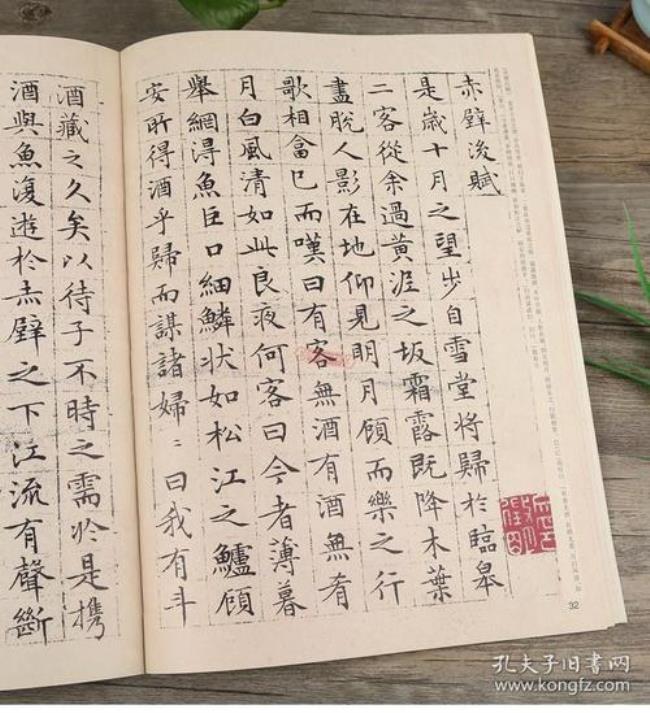 赤壁後賦
是歲十月之望步自雪堂將歸於臨皋
二客從余過黃泥之坂霜露既降木葉
盡脫人影在地仰見明月顧而樂之行
歌相答已而嘆曰有客無酒有酒無肴
月白風清如此良夜何客曰今者薄暮
舉網得魚巨口細鱗狀如松江之鱸顧
安所得酒乎歸而謀諸婦〻曰我有斗
酒藏之久矣以待子不時之需於是携
酒與魚復遊於赤壁之下江流有聲斷
32
孔夫子旧书网
www.kongfz.com